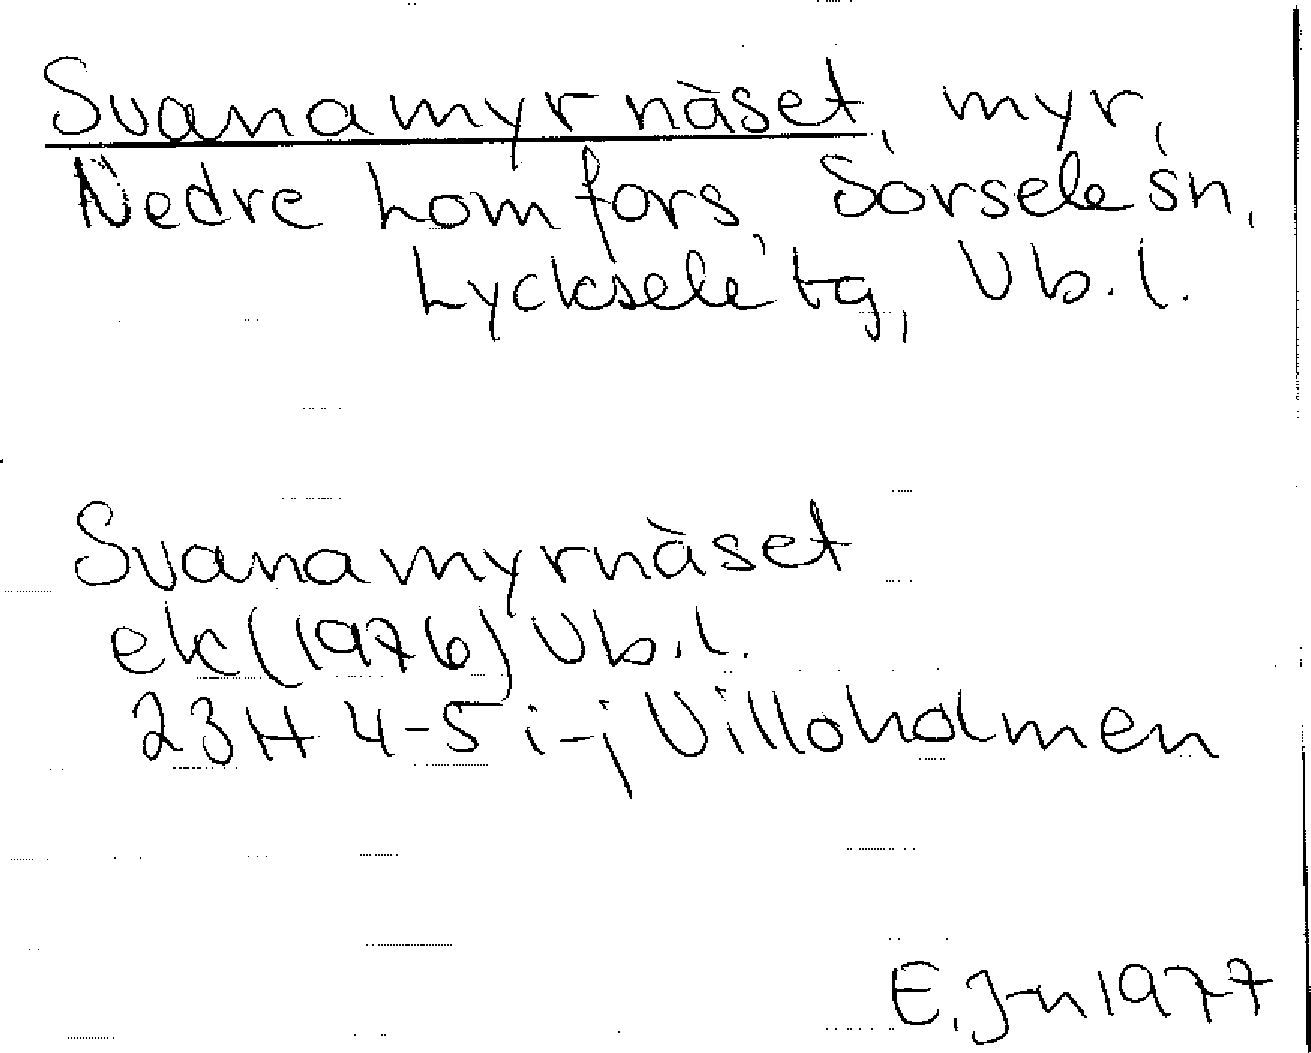 Svanamyrnäset, myr,
Nedre Lomfors, Sorsele sn,
Lycksele tg, Vb.l.
Svanamyrnäset
ek (1976) Vb.l.
23H 4-5 i-j Villoholmen
E.J-n 1977